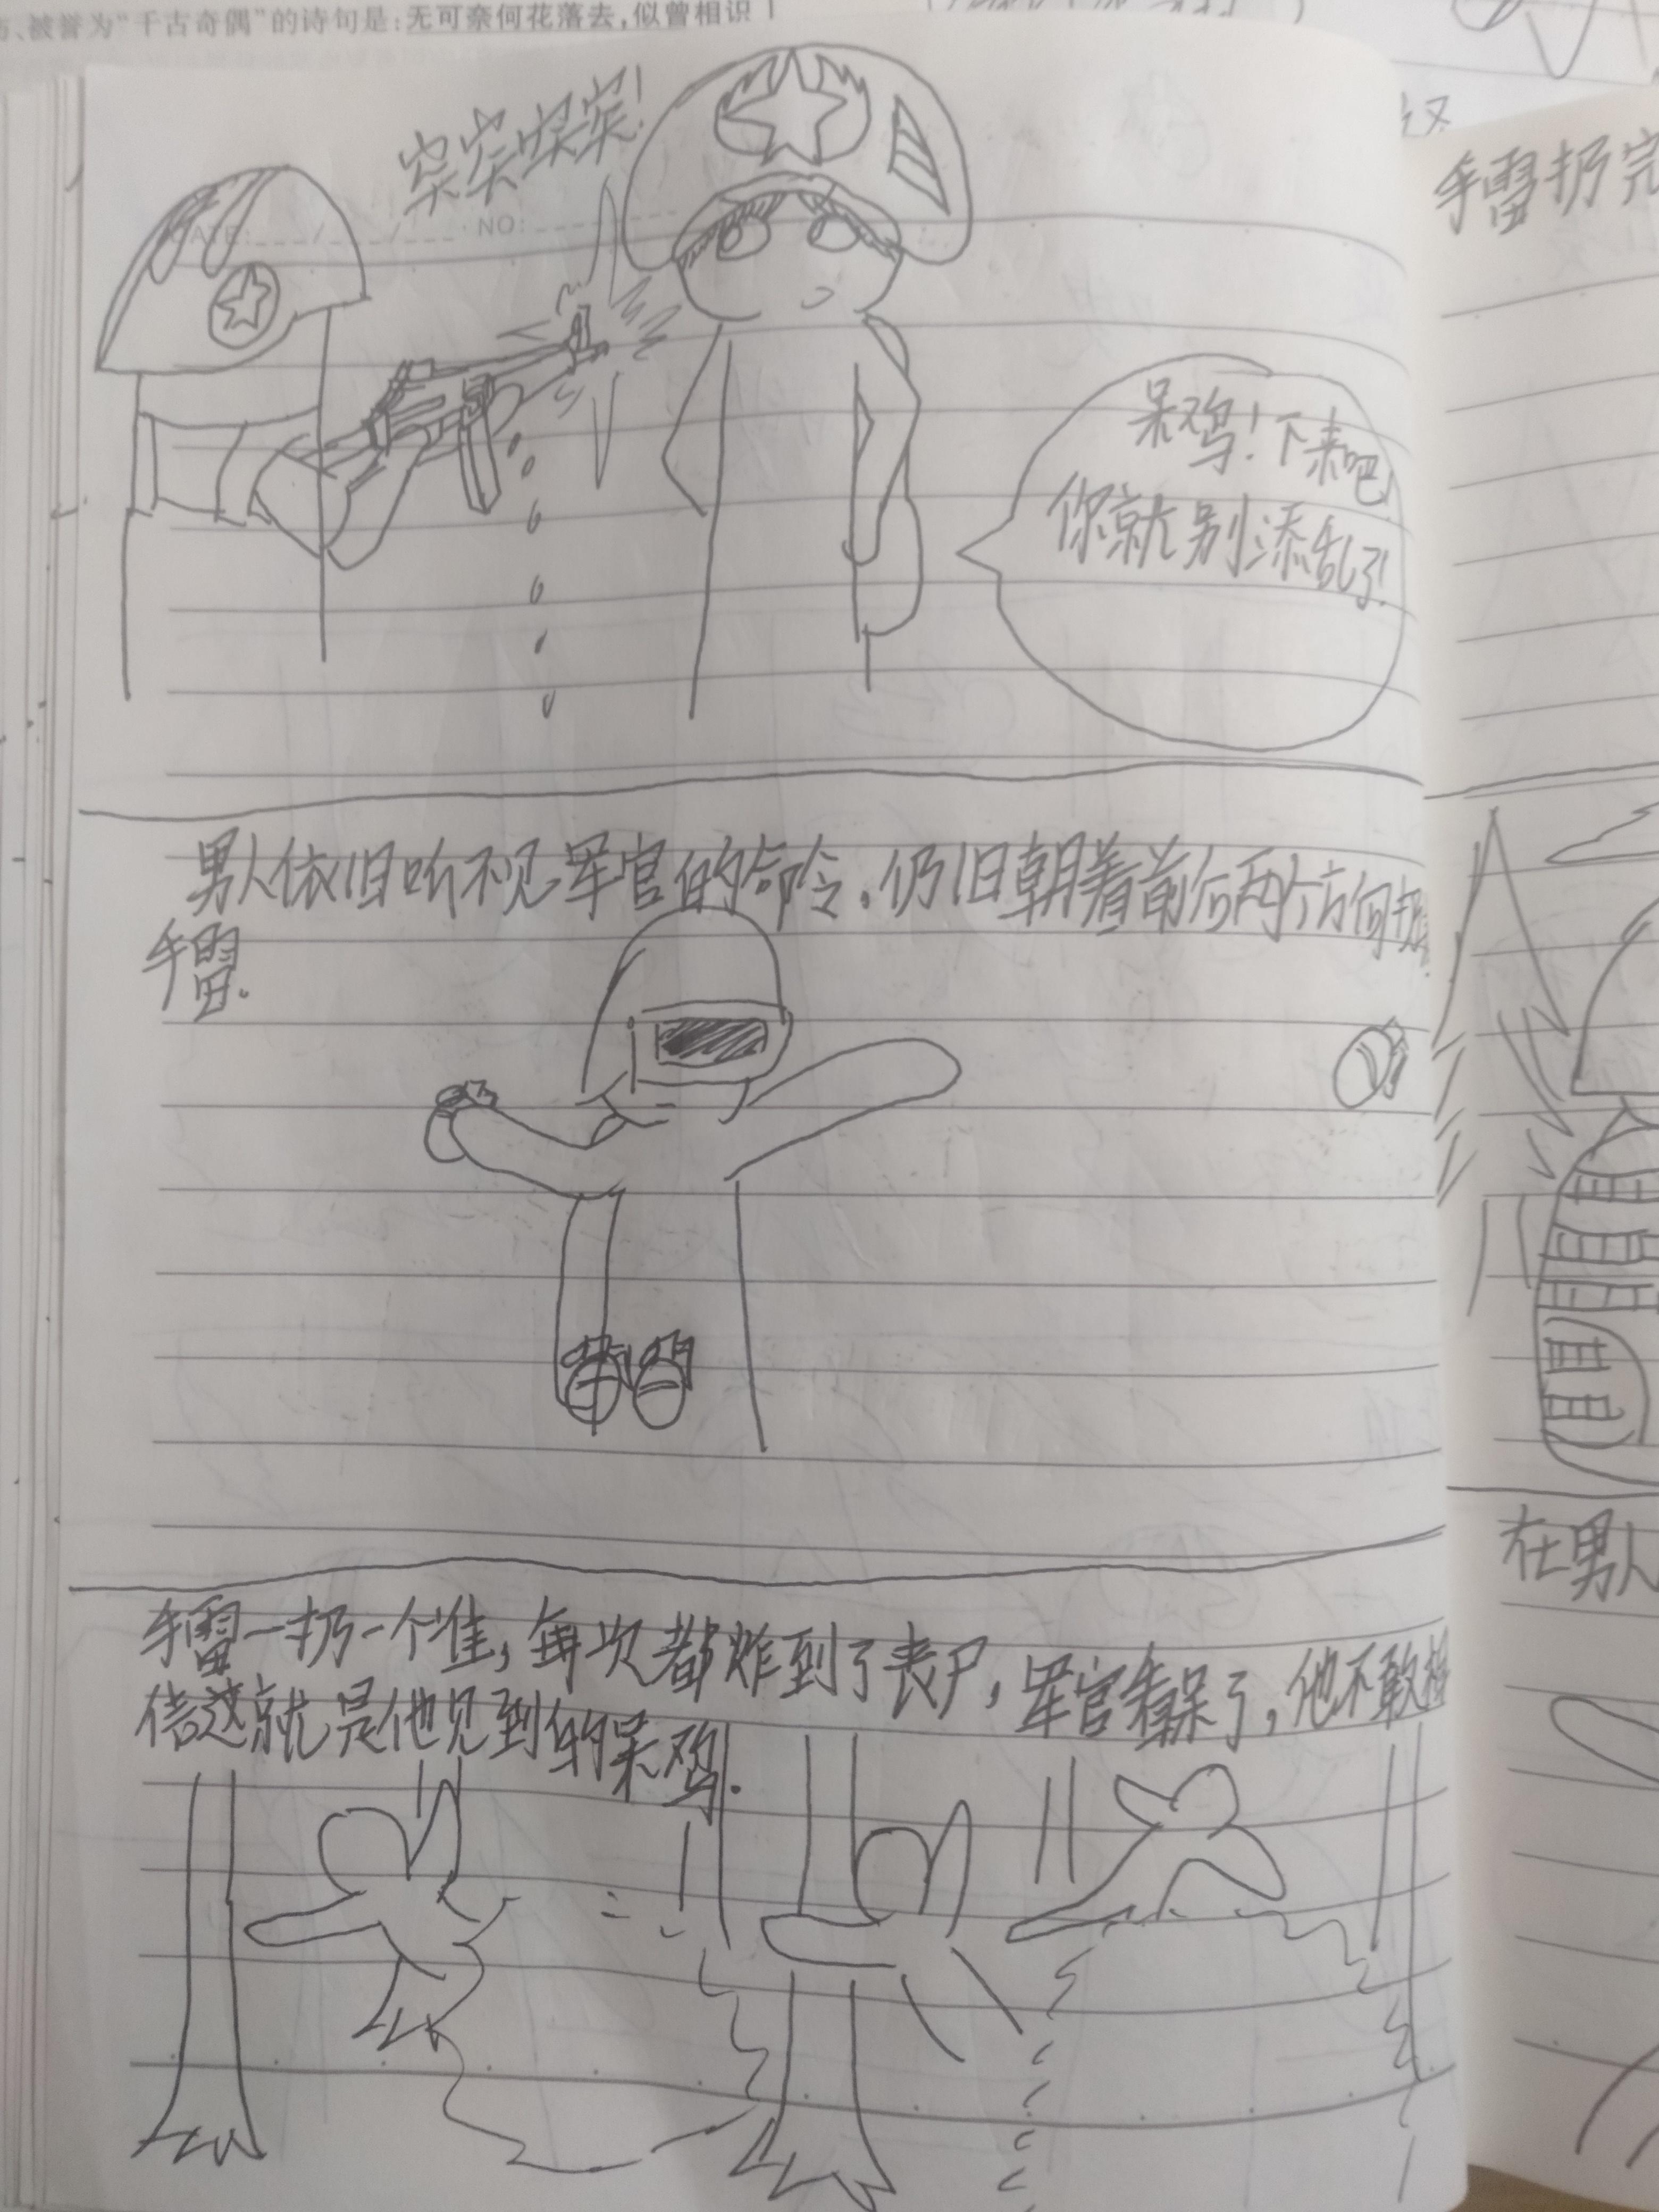 被誉为“千古奇偶”的诗句是:无可奈何花落去,似曾相识
突突突突!
DATE: / / NO:
呆鸡!下来吧!
你就别添乱了!
男人依旧听不见军官的命令,仍旧朝着前后两个方向扔
手雷.
手雷一扔一个准,每次都炸到了丧尸,军官看呆了,他不敢相
信这就是他见到的呆鸡.
手雷扔完
在男人